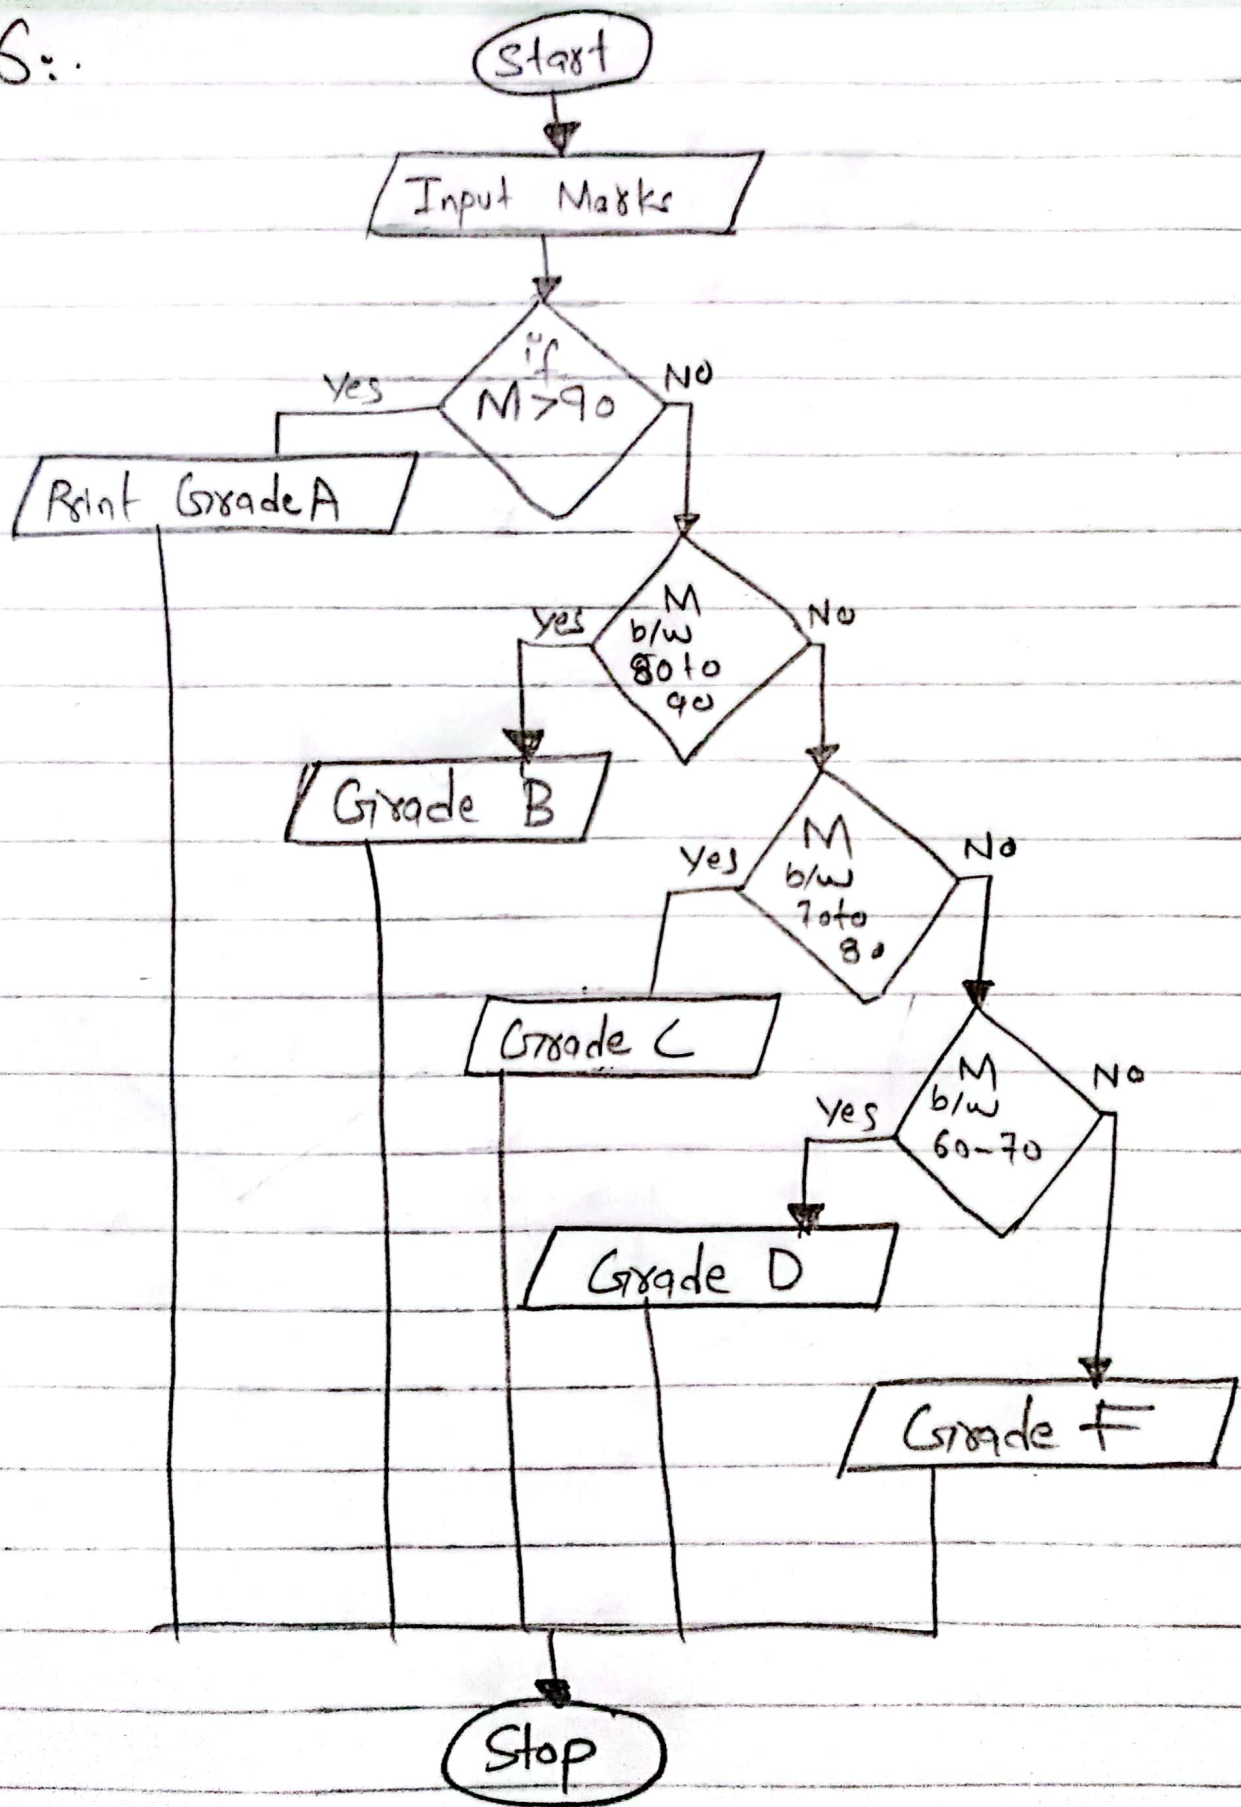 6:.
Start
Input Marks
if
M>90
Yes
No
Print Grade A
M
b/w
80 to
90
Yes
No
Grade B
M
b/w
70 to
80
Yes
No
Grade C
M
b/w
60-70
Yes
No
Grade D
Grade F
Stop